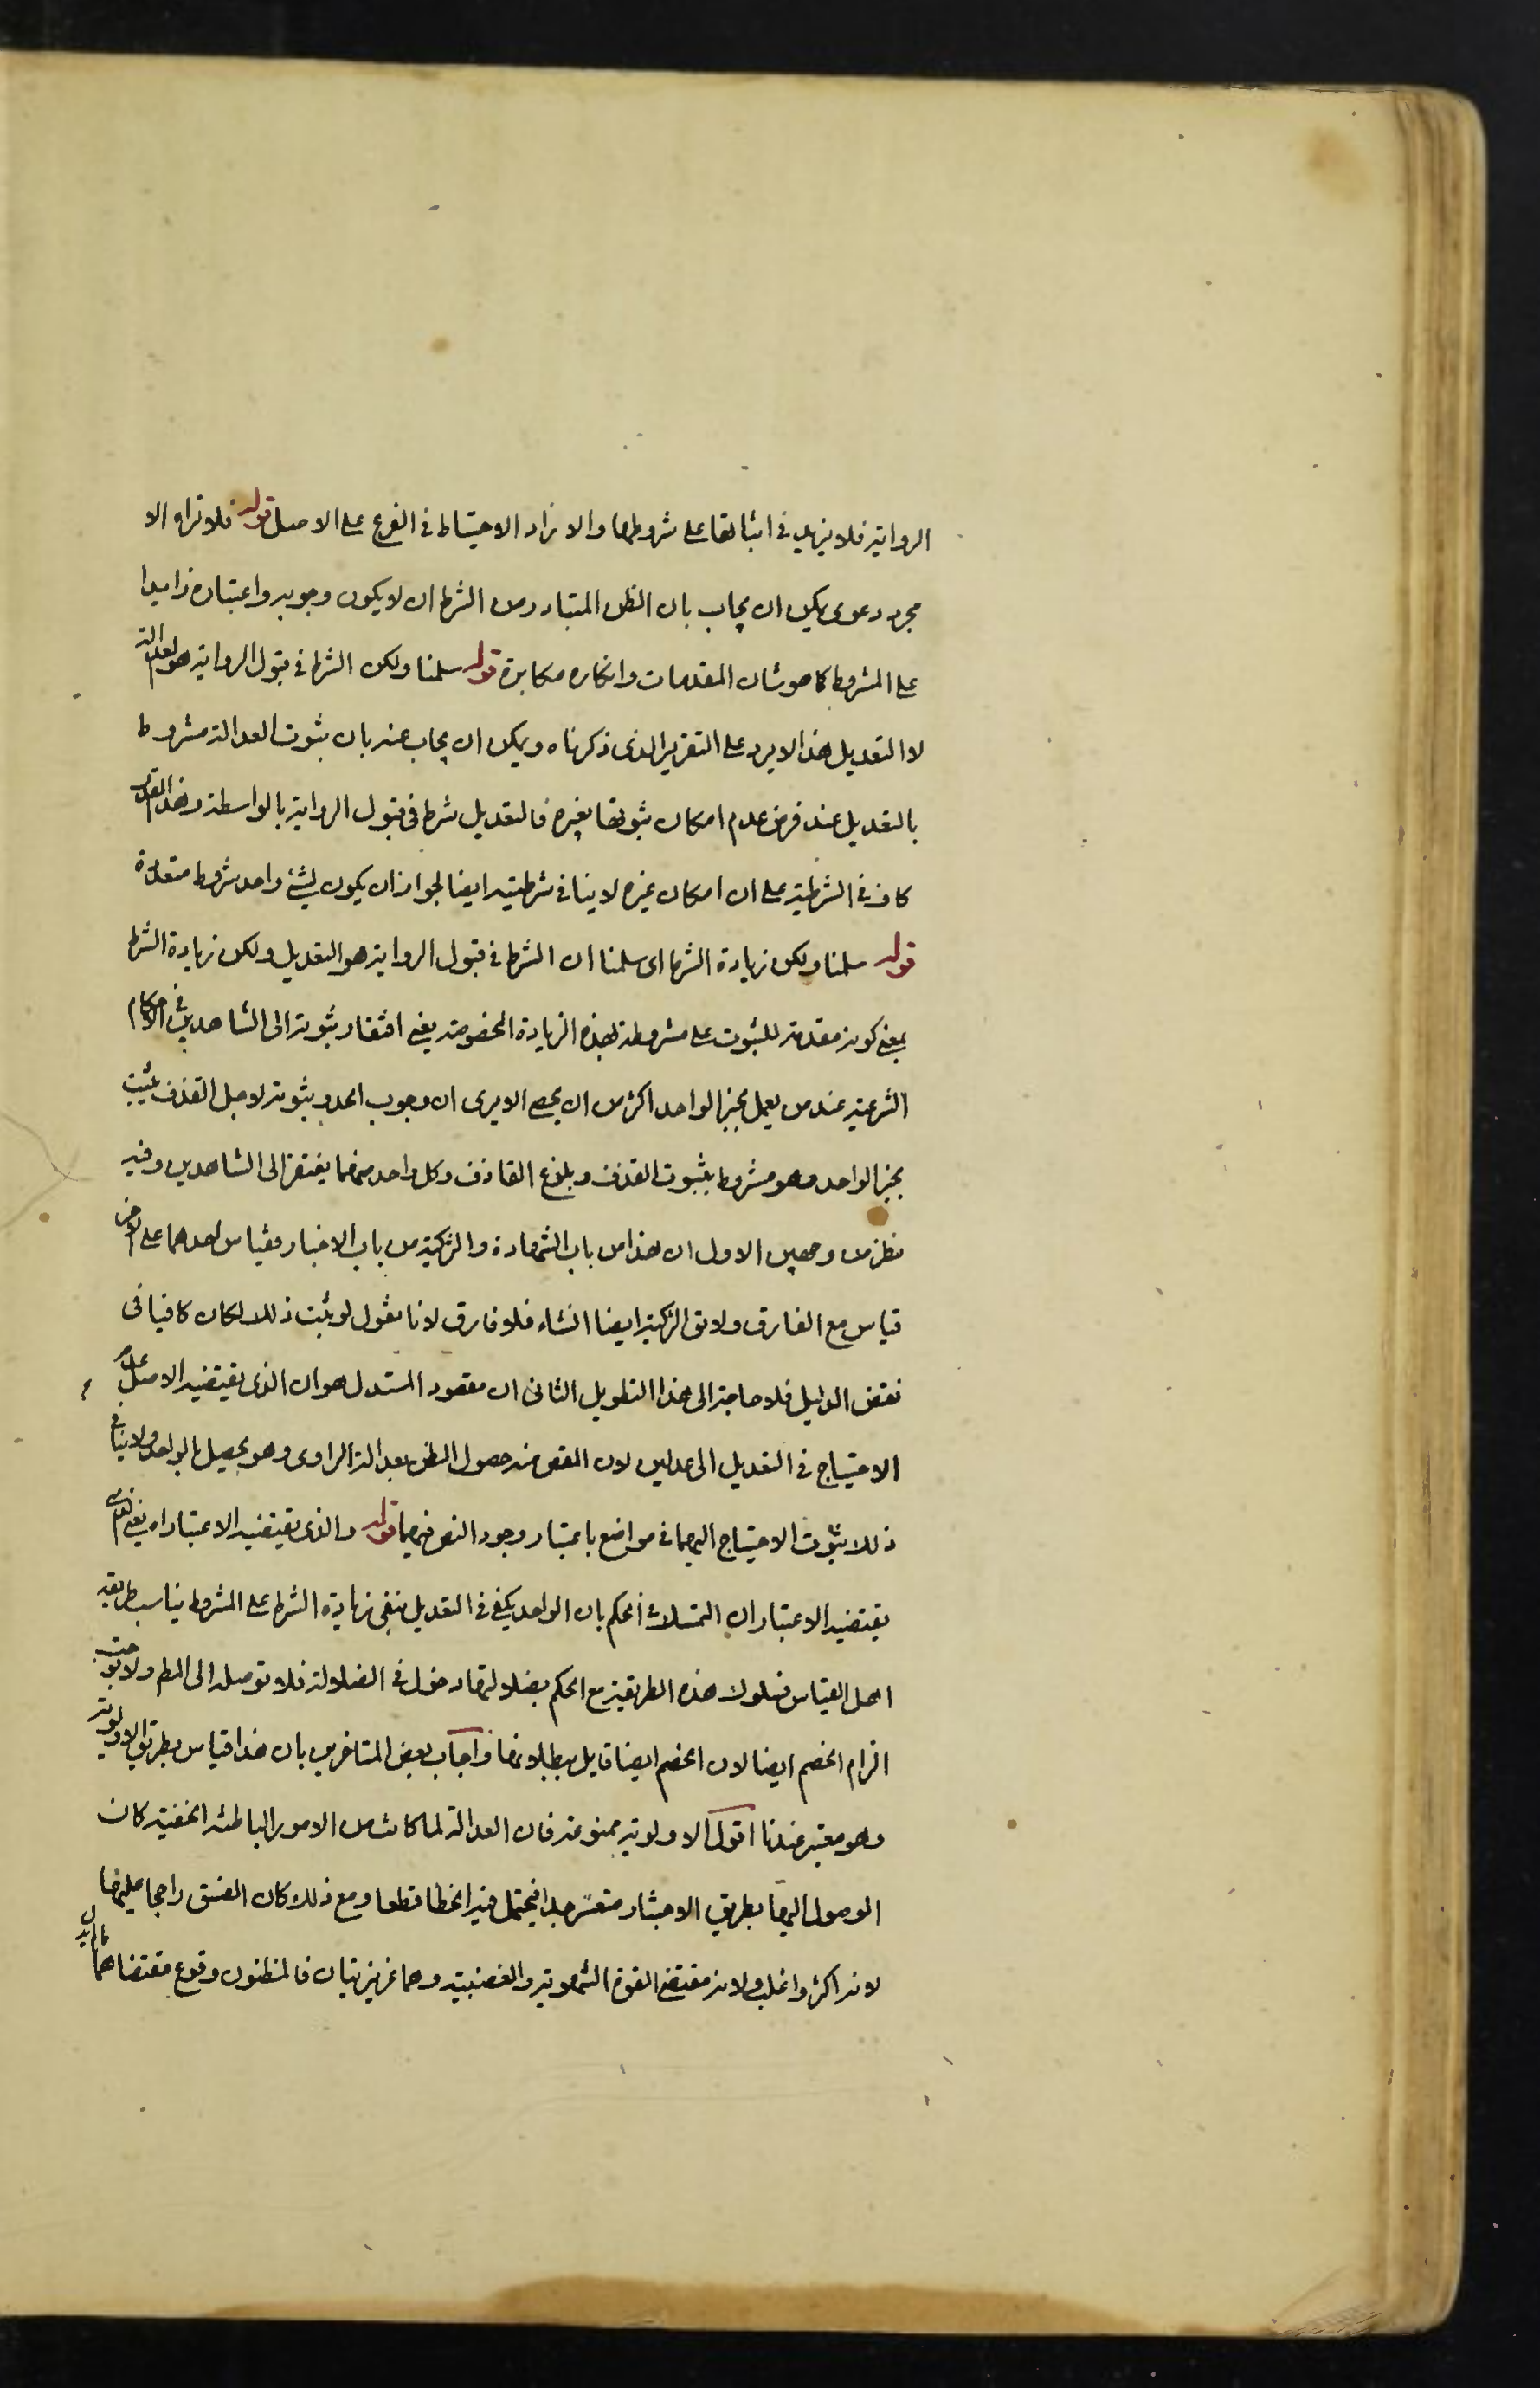 الرواية فلا يزيد في اثباتها على شروطها والا زاد الاحتياط في الفرع على الاصل قوله فلا نراه الا
مجرد دعوى يمكن ان يجاب بان الظن المتبادر من الشرط ان لا يكون وجوبه واعتباره زايدا
على المشروط كما هو شان المقدمات وانكاره مكابرة قوله سلمنا ولكن الشرط في قبول الرواية هو العدالة
لا التعديل هذا لا يرد على التقرير الذى ذكرناه ويمكن ان يجاب عنه بان ثبوت العدالة مشروط
بالتعديل عند فرض عدم امكان ثبوتها بغيره فالتعديل شرط في قبول الرواية بالواسطة وهذا القدر
كاف في الشرطية على ان امكان غيره لا ينافي شرطيته ايضا لجواز ان يكون لشئ واحد شروط متعددة
قوله سلمنا ولكن زيادة الشرط اى سلمنا ان الشرط في قبول الرواية هو التعديل ولكن زيادة الشرط
بمعنى كونه مقدمة للثبوت على مشروطه بهذه الزيادة المخصوصة يعنى افتقار ثبوته الى الشاهدين في الاحكام
الشرعية عند من يعمل بخبر الواحد اكثر من ان يحصى الا يرى ان وجوب الحد وثبوته لاجل القذف يثبت
بخبر الواحد وهو مشروط بثبوت القذف وبلوغ القاذف وكل واحد منهما يفتقر الى الشاهدين وفيه
نظر من وجهين الاول ان هذا من باب الشهادة والتزكية من باب الاخبار وقياس احدهما على الاخر
قياس مع الفارق ولا يق التزكية ايضا انشاء فلا فارق لانا نقول لو ثبت ذلك لكان كافيا في
نقض الدليل فلا حاجة الى هذا التطويل الثانى ان مقصود المستدل هو ان الذى يقتضيه الاصل عدم
الاحتياج في التعديل الى عدلين لان الغرض منه حصول الظن بعدالة الراوى وهو يحصل بالواحد ولا ينافي
ذلك ثبوت الاحتياج اليهما في مواضع باعتبار وجود النص فيهما قوله والذى يقتضيه الاعتبار اه يعنى الذى
يقتضيه الاعتبار ان التمسك في الحكم بان الواحد يكفي في التعديل بنفى زيادة الشرط على المشروط يناسب طريقة
اهل القياس فسلوك هذه الطريقة مع الحكم بضلالتها دخول في الضلالة فلا توصله الى المط ولا توجب
الزام الخصم ايضا لان الخصم ايضا قايل ببطلانها واجاب بعض المتاخرين بان هذا قياس بطريق الاولوية
وهو معتبر عندنا اقول الاولوية ممنوعة فان العدالة لما كانت من الامور الباطنة الخفية كان
الوصول اليها بطريق الاختبار متعسر جدا فيحتمل فيه الخطا قطعا ومع ذلك كان الفسق راجحا عليها
لانه اكثر واغلب ولانه مقتضى القوة الشهوية والغضبية وهما غريزيتان فالمظنون وقوع مقتضاهما